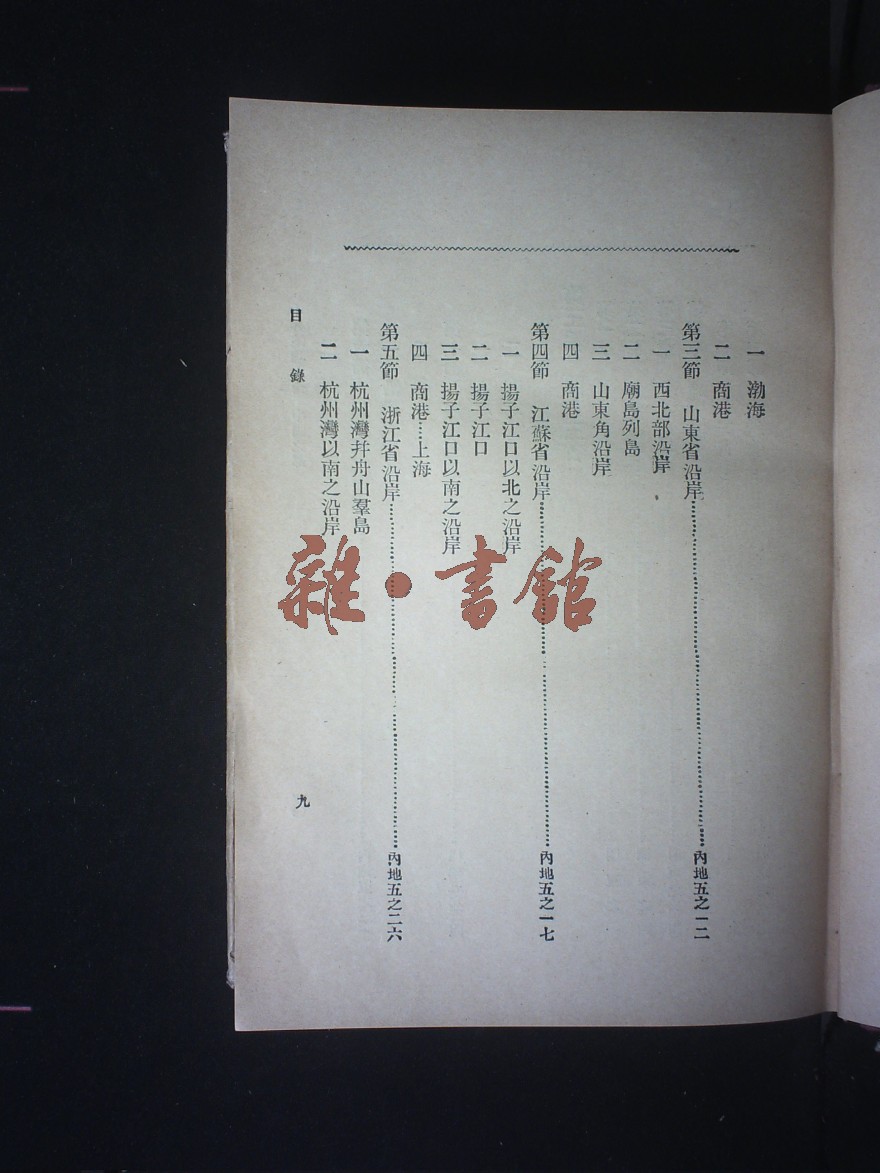 一　渤海
二　商港
第三節　山東省沿岸……………………內地五之一二
一　西北部沿岸
二　廟島列島
三　山東角沿岸
四　商港
第四節　江蘇省沿岸……………………內地五之一七
一　揚子江口以北之沿岸
二　揚子江口
三　揚子江口以南之沿岸
四　商港…上海
第五節　浙江省沿岸……………………內地五之二六
一　杭州灣幷舟山羣島
二　杭州灣以南之沿岸
目　錄
九
雜·書館